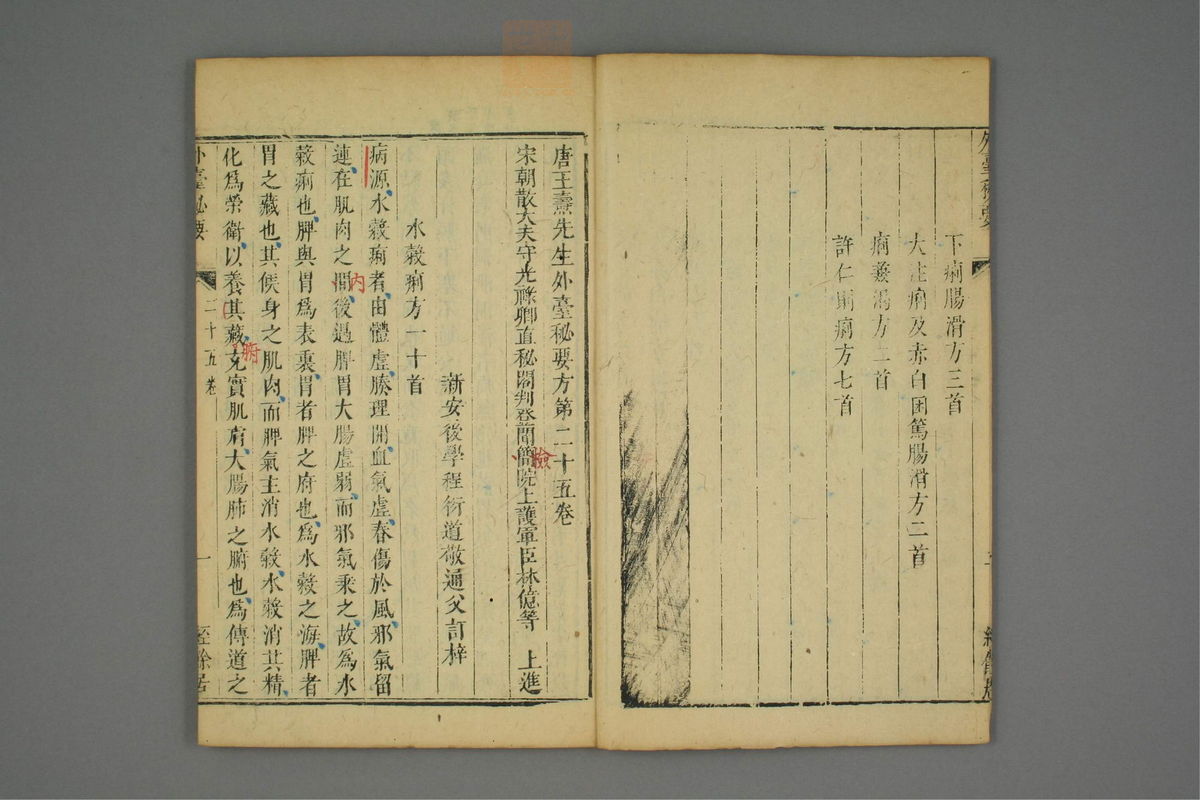 下痢腸滑方三首
大注痢及赤白困篤腸滑方二首
痢兼渴方二首
許仁則痢方七首
唐王燾先生外臺秘要方第二十五卷
宋朝散大夫守光祿卿直秘閣判登聞簡院上護軍臣林億等 上進
檢
新安後學程衍道敬通父訂梓
水穀痢方一十首
病源水穀痢者由體虛腠理開血氣虛春傷於風邪氣留
連在肌肉之間後遇脾胃大腸虛弱而邪氣乘之故為水
內
穀痢也脾與胃為表裏胃者脾之府也為水穀之海脾者
胃之藏也其候身之肌肉而脾氣主消水穀水穀消其精
化為榮衛以養其藏充實肌膚大腸肺之腑也為傳道之
腑
外臺秘要 二十五卷 一 經餘居